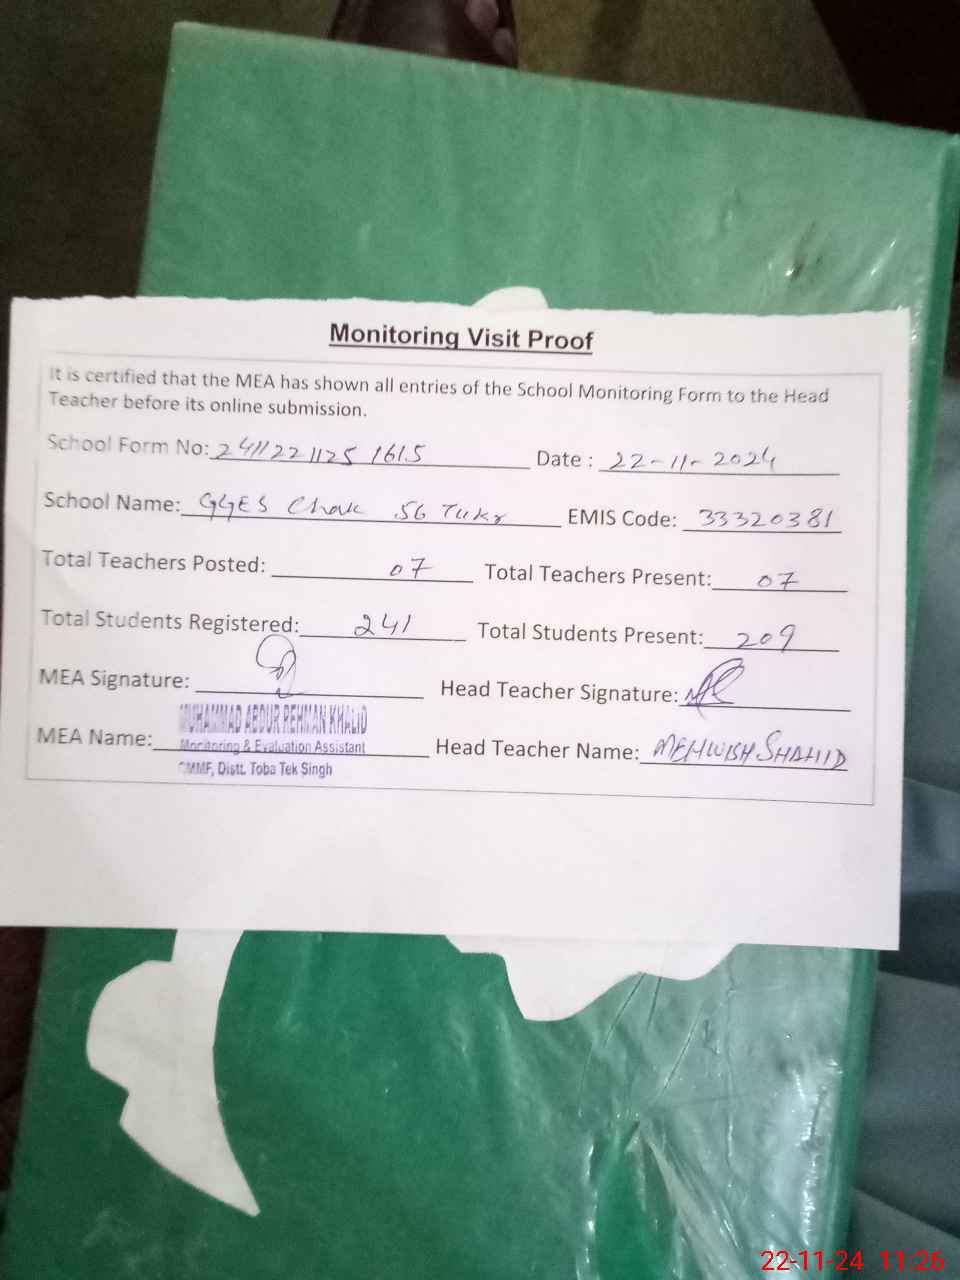 Monitoring Visit Proof
It is certified that the MEA has shown all entries of the School Monitoring Form to the Head
Teacher before its online submission.
School Form No: 2411221125 1615 Date : 22-11-2024
School Name: GGES Chak 56 Tukr EMIS Code: 33320381
Total Teachers Posted: 07 Total Teachers Present: 07
Total Students Registered: 241 Total Students Present: 209
MEA Signature: Head Teacher Signature:
MUHAMMAD ABDUR REHMAN KHALID
MEA Name: Monitoring & Evaluation Assistant Head Teacher Name: MEHWISH SHAHID
CMMF, Distt. Toba Tek Singh
22-11-24 11:26